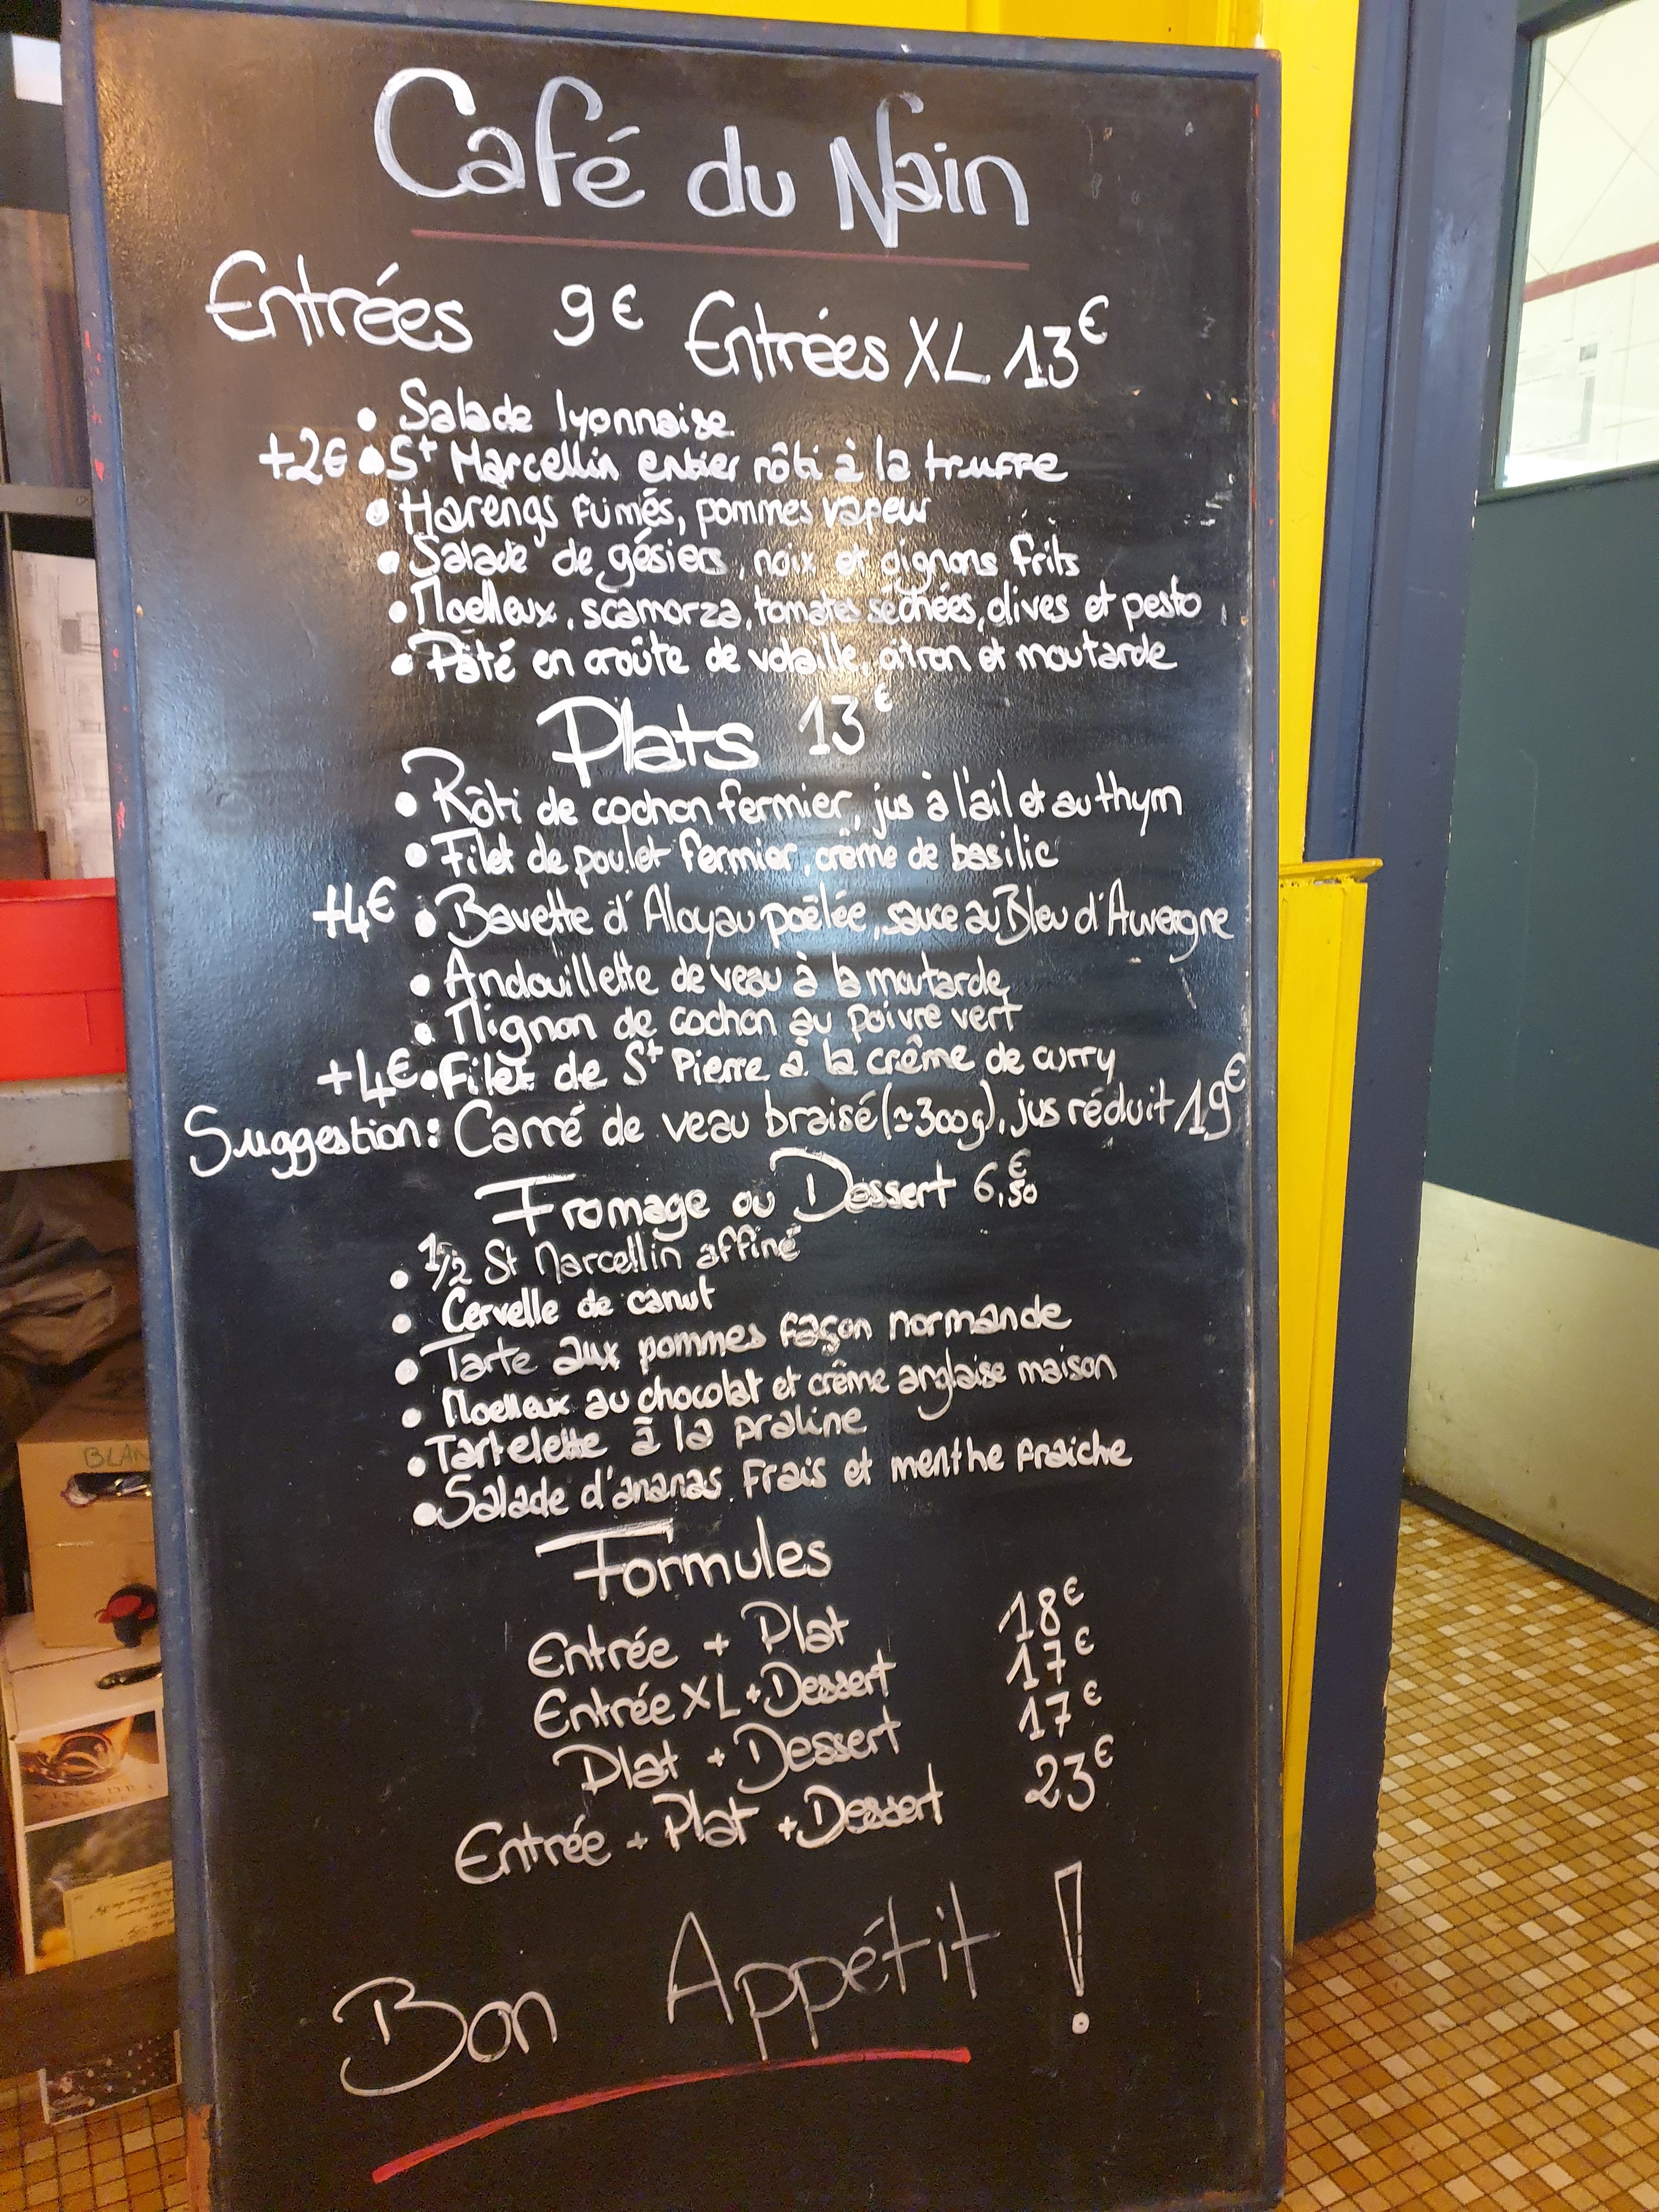 Café du Nain
Entrées 9€ Entrées XL 13€
• Salade lyonnaise
+2€ • St Marcellin entier rôti à la truffe
• Harengs fumés, pommes vapeur
• Salade de gésiers, noix et oignons frits
• Moelleux, scamorza, tomates séchées, olives et pesto
• Pâté en croûte de volaille, citron et moutarde
Plats 13€
• Rôti de cochon fermier, jus à l'ail et au thym
• Filet de poulet fermier, crème de basilic
+4€ • Bavette d'Aloyau poêlée, sauce au Bleu d'Auvergne
• Andouillette de veau à la moutarde
• Mignon de cochon au poivre vert
+4€ • Filet de St Pierre à la crême de curry
Suggestion: Carré de veau braisé (≃300g), jus réduit 19€
Fromage ou Dessert 6,50€
• 1/2 St Marcellin affiné
• Cervelle de canut
• Tarte aux pommes façon normande
• Moelleux au chocolat et crême anglaise maison
• Tartelette à la praline
• Salade d'ananas frais et menthe fraiche
Formules
Entrée + Plat 18€
Entrée XL + Dessert 17€
Plat + Dessert 17€
Entrée + Plat + Dessert 23€
Bon Appétit !
BLAN